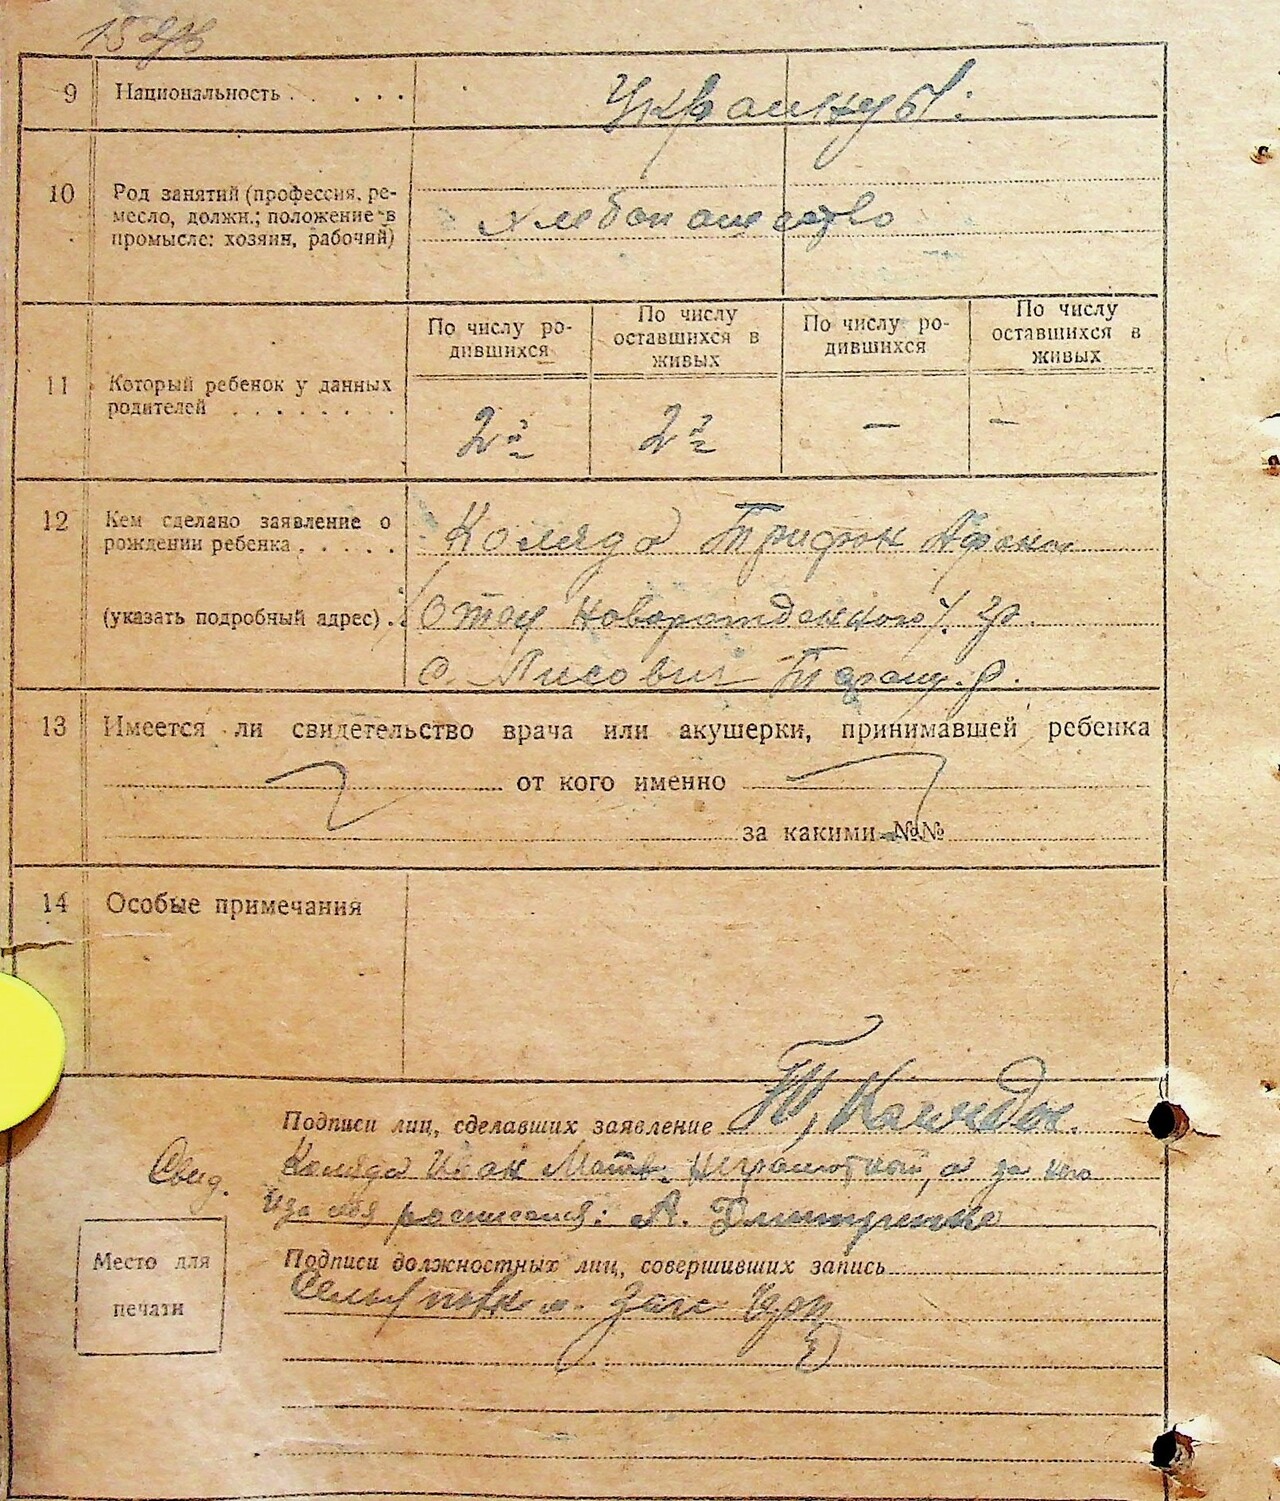 15
9 Национальность . . . . . Украинцы.
10 Род занятий (профессия, ре-
месло, должн.; положение в
промысле: хозяин, рабочий)
хлебопашество
По числу ро-
дившихся
По числу
оставшихся в
живых
По числу ро-
дившихся
По числу
оставшихся в
живых
11 Который ребенок у данных
родителей . . . . . . . .
2й 2й — —
12 Кем сделано заявление о
рождении ребенка . . . . .
Коляда Трифон Афона
(указать подробный адрес) . (Отец новорожденного), гр.
с. Лисович Таращ. р.
13 Имеется ли свидетельство врача или акушерки, принимавшей ребенка
от кого именно
за какими №№
14 Особые примечания
Подписи лиц, сделавших заявление Т. Колядок.
Свид. Коляда Иван Матв. неграмотный, а за него
и за себя росписался: А. Дмитренко
Место для
печати
Подписи должностных лиц, совершивших запись
загс